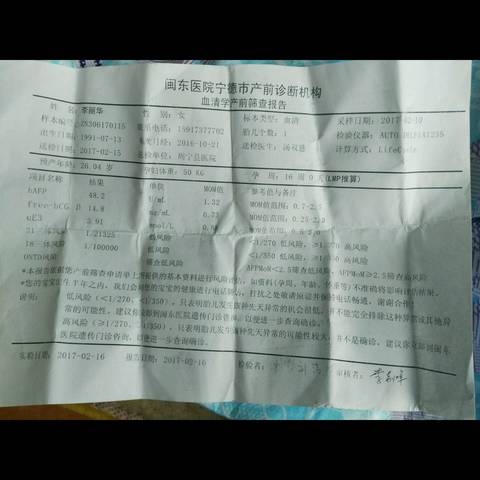 闽东医院宁德市产前诊断机构
血清学产前筛查报告
姓 名: 李丽华 性 别: 女 标本类型: 血清 采样日期: 2017-02-10
样本编号: ZS306170115 联系电话: 15917377702 胎儿个数: 1 检验仪器: AUTO
出生日期: 1991-07-13 末次月经: 2016-10-21 送检医生: 汤双慈 计算方式: LifeCycle
送检日期: 2017-02-15 送检单位: 周宁县医院
预产年龄: 26.04 岁 孕妇体重: 50 KG 孕 周: 16 周 0 天(LMP推算)
项目名称 结果 单位 MOM值 参考值与备注
hAFP 48.2 U/mL 1.32 MOM值范围: 0.7-2.5
free-hCG β 14.8 ng/mL MOM值范围: 0.25-2.0
uE3 3.91 nmol/L MOM值范围:
21 1/21325 低风险 <1/270 低风险, ≥1/270 高风险
18 1/100000 低风险 <1/350 低风险, ≥1/350 高风险
ONTD风险 筛查低风险 AFPMoM<2.5筛查低风险, AFPMoM≥2.5筛查高风险
*本报告依据您产前筛查申请单上所提供的基本资料进行风险评估, 如资料(孕周、年龄、体重等)不准确将影响评估结果。
*您的宝宝出生半年之内, 我们会对您的宝宝的健康进行电话随访, 打扰之处敬请原谅并保持电话畅通, 谢谢合作!
说明: 低风险(<1/270、<1/350), 只表明胎儿发生该种先天异常的机会很低, 并不能完全排除这种异常或其他异常的可能性,
高风险(≥1/270、≥1/350), 只表明胎儿发生该种先天异常的可能性较大, 并不是确诊, 建议你立即到闽东
医院遗传门诊咨询, 以便进一步查询确诊。
实验日期: 2017-02-16 报告日期: 2017-02-16 检验者: 审核者: